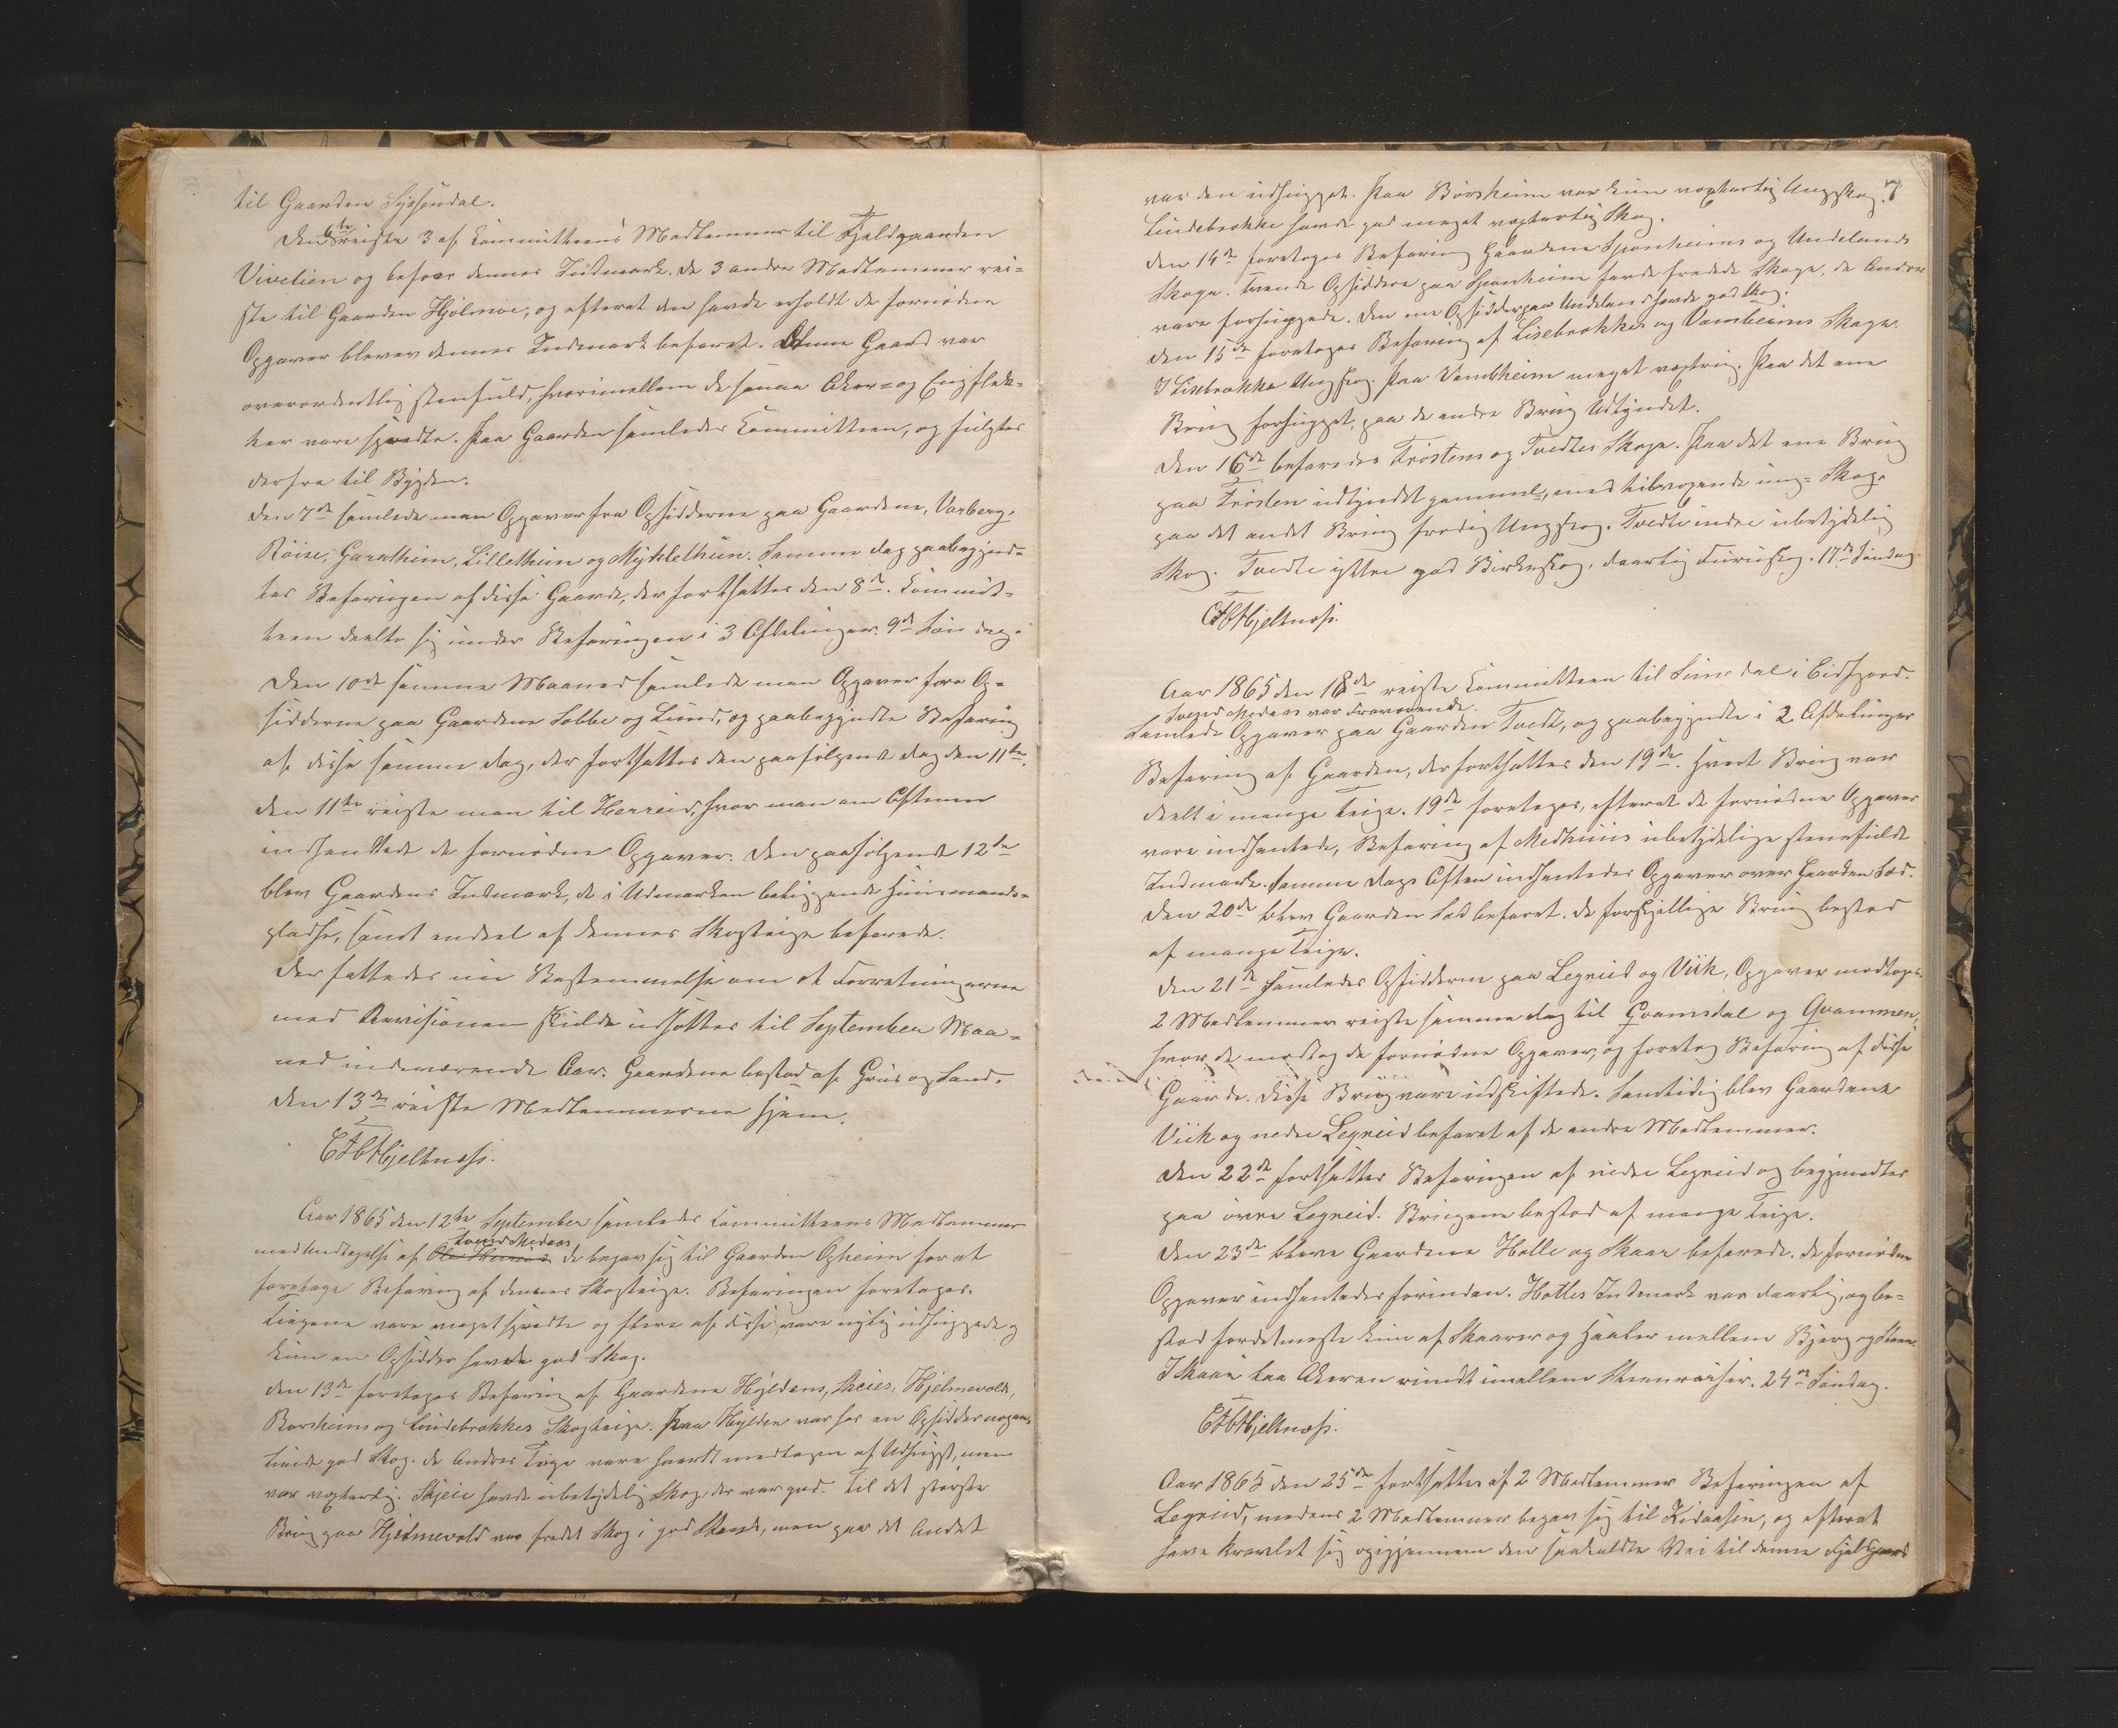 til Gaarden Syssendal.
Den 6te reiste 3 af Committeens Medlemmer til Fjeldgaarden
Vivelien og befoer dennes Indmark. De 3 andre Medlemmer rei-
ste til Gaarden Hjölmoe, og efterat den havde erholdt de fornødne
Opgaver bleven dennes Indmark befaret. Denne Gaard var
overordentlig stenfuld, hvorimellem de smaa Aker- og Engflek-
ker vare spredte. Paa Gaarden samledes Committeen, og fulgtes
derfra til Bygden.
Den 7de samlede man Opgaver fra Opsidderne paa Gaardene, Varberg,
Röise, Garathun, Lillethun og Myklethun. Samme Dag paabegynd-
tes Befaringen af disse Gaarde, der fortsattes den 8de. Commit-
teen deelte sig under Befaringen i 3 Afdelinger. 9de Søndag.
Den 10de samme Maaned samlede man Opgaver fra Op-
sidderne paa Gaardene Lobbe og Lund, og paabegyndte Befaring
af disse samme Dag, der fortsattes den paafølgende Dag den 11te.
Den 11te reiste man til Herreid, hvor man om Aftenen
indhentede de fornødne Opgaver. Den paafølgende 12te
blev Gaardens Indmark, de i Udmarken beliggende Huusmands-
pladse, samt endeel af dennes Skogteige befarede.
Der fattedes nu Bestemmelse om at Forretningerne
med Revisionen skulde udsættes til September Maa-
ned indeværende Aar. Gaardene bestod af Gruus og Sand.
Den 13de reiste Medlemmerne hjem.
Hjeltnæss.
Aar 1865 den 12te September samledes Committeens Medlemmer
Svend Medaas
med Undtagelse af de begav sig til Gaarden Opheim for at
foretage Befaring af dennes Skogteige. Befaringen foretoges.
Teigene vare meget spredte og flere af disse vare nylig udhuggede og
kun en Opsidder havde god Skog.
Den 13de foretoges Befaring af Gaardene Hyldens, Skeies, Hjelmevolds,
Borsheims og Lindebrækkes Skogteige. Paa Hylden var hos en Opsidder nogen-
lunde god Skog. De Andres Teige vare haardt medtagen af Udhugst, men
var voxterlig. Skjeie havde ubetydelig Skog, der var god. Til det største
Brug paa Hjelmevold var fredet Skog i god Stand, men paa det Andet
7
var den udhugget. Paa Börsheim var kun voxterlig Ungskog.
Lindebrække havde god meget voxterlig Skog.
Den 14de foretoges Befaring Gaardene Sponheims og Undelands
Skoge. Tvende Opsiddere paa Sponheim havde fredede Skoge, de Andre
vare forhuggede. Den ene Opsidder paa Undeland havde god Skog.
Den 15de foretoges Befaring af Lisebrækkes og Vambeims Skoge.
I Lisebrække Ungskog. Paa Vambheim meget voxtrig. Paa det ene
Brug forhugget, paa de andre Brug Udtyndet.
Den 16de befaredes Tröstens og Tvedtes Skoge. Paa det ene Brug
paa Trösten udtyndet gammel, med tilvoxende ung- Skog.
paa det andet Brug frodig Ungskog. Tvedte indre ubetydelig
Skog. Tvedte ytre god Birkeskog, daarlig Furuskog. 17de Søndag.
Hjeltnæss.
Aar 1865 den 18de reiste Committeen til Simedal i Eidfjord.
Svend Medaas var Fraværende.
Samlede Opgaver paa Gaarden Tvedt, og paabegyndte i 2 Afdelinger
Befaring af Gaarden, der fortsattes den 19de. Hvert Brug var
deelt i mange Teige. 19de foretoges, efterat de fornødne Opgaver
vare indhentede, Befaring af Medhuus ubetydelige steenfulde
Indmark. Samme Dags Aften indhentedes Opgaver over Gaarden Sæd.
Den 20de blev Gaarden Sæd befaret. De forskjellige Brug bestod
af mange Teige.
Den 21de samledes Opsidderne paa Legreid og Viik, Opgaver modtoges.
2 Medlemmer reiste samme Dag til Qvamsdal og Qvammen,
hvor de modtog de fornødne Opgaver, og foretog Befaring af disse
Gaarde. Disse Brug vare udskiftede. Samtidig blev Gaardene
Viik og nedre Legreid befaret af de andre Medlemmer.
Den 22de fortsattes Befaringen af nedre Legreid og begyndtes
paa øvre Legreid. Brugene bestod af mange Teige.
Den 23de bleve Gaardene Holle og Skaar befarede. De fornødne
Opgaver indhentedes forinden. Holles Indmark var daarlig, og be-
stod fordetmeste kun af Skaarer og Haaler mellem Bjerg og Steen.
I Skaar laa Akeren rundt imellem Steenrøiser. 24de Søndag.
Hjeltnæss.
Aar 1865 den 25de fortsattes af 2 Medlemmer Befaringen af
Legreid, medens 2 Medlemmer begav sig til Kidaasen, og efterat
have kravlet sig opigjennem den saakaldte Vei til denne Fjeldgaard